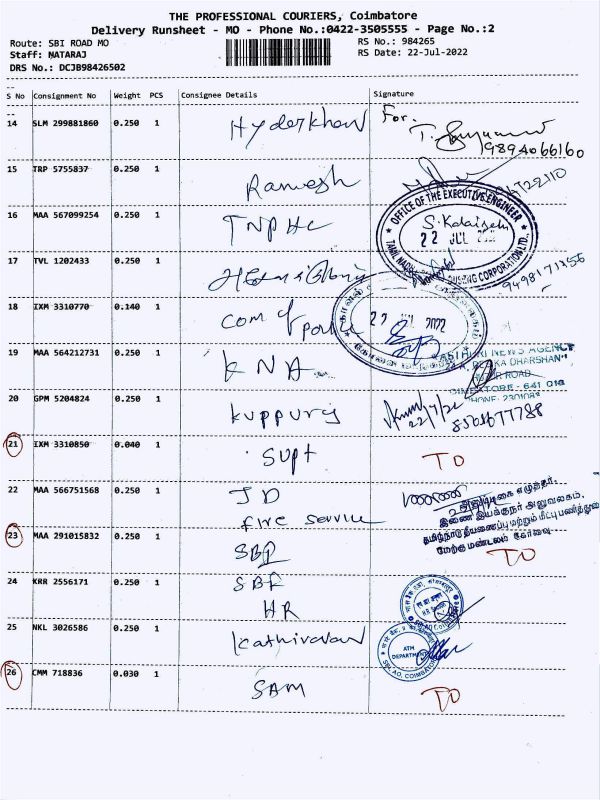 THE PROFESSIONAL COURIERS, Coimbatore
Delivery Runsheet - MO - Phone No.:0422-3505555 - Page No.:2
Route: SBI ROAD MO
RS No.: 984265
Staff: NATARAJ
RS Date: 22-Jul-2022
DRS No.: DCJB98426502
S No Consignment No Weight PCS Consignee Details Signature
14 SLM 299881860 0.250 1 Hyderkhan For.
9894066160
15 TRP 5755837 0.250 1 Ramesh
16 MAA 567099254 0.250 1 TNPHC
OFFICE OF THE EXECUTIVE ENGINEER
22 JUL
HOUSING CORPORATION LTD.,
17 TVL 1202433 0.250 1
9498171356
18 IXM 3310770 0.140 1 Com of police
22 JUL 2022
19 MAA 564212731 0.250 1 KNA
NEWS AGENCY
DHARSHAN"
ROAD
641 018
20 GPM 5204824 0.250 1 Kuppuraj
22/7/22
21 IXM 3310850 0.040 1 Supt TO
22 MAA 566751568 0.250 1 JD
fire service
இணை இயக்குநர் அலுவலகம்,
தமிழ்நாடு தீயணைப்பு மற்றும் மீட்பு பணித்துறை
மேற்கு மண்டலம் கோவை.
23 MAA 291015832 0.250 1 SBI TO
24 KRR 2556171 0.250 1 SBI
HR
25 NKL 3026586 0.250 1 Kathiravan
ATM
DEPARTMENT
SBI, AO, COIMBATORE
26 CMM 718836 0.030 1 SAM TO